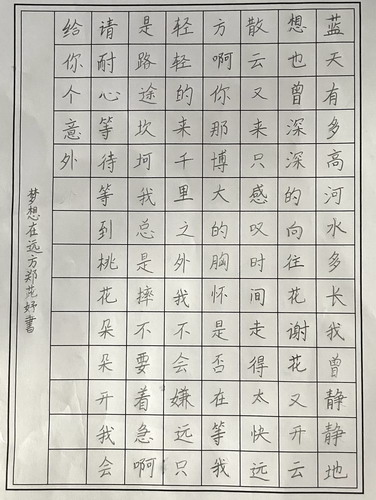 蓝天有多高河水多长我曾静静地
想也曾深深的向往花谢花又开云
散云又来只感叹时间走得太快远
方啊你那博大的胸怀是否在等我
轻轻的来千里之外我不会嫌远只
是路途坎坷我总是摔不要着急啊
请耐心等待等到桃花朵朵开我会
给你个意外
梦想在远方郑苑妤書